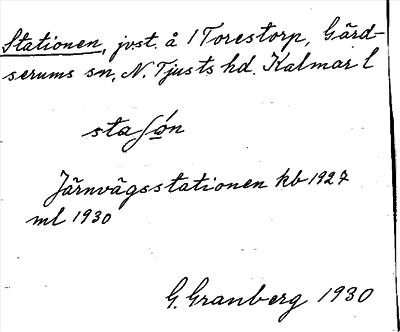 Stationen, jvst. å 1 Torestorp, Gärd-
serums sn, N. Tjusts hd. Kalmar l
staʃón
Järnvägsstationen kb 1927
ml 1930
G. Granberg 1930